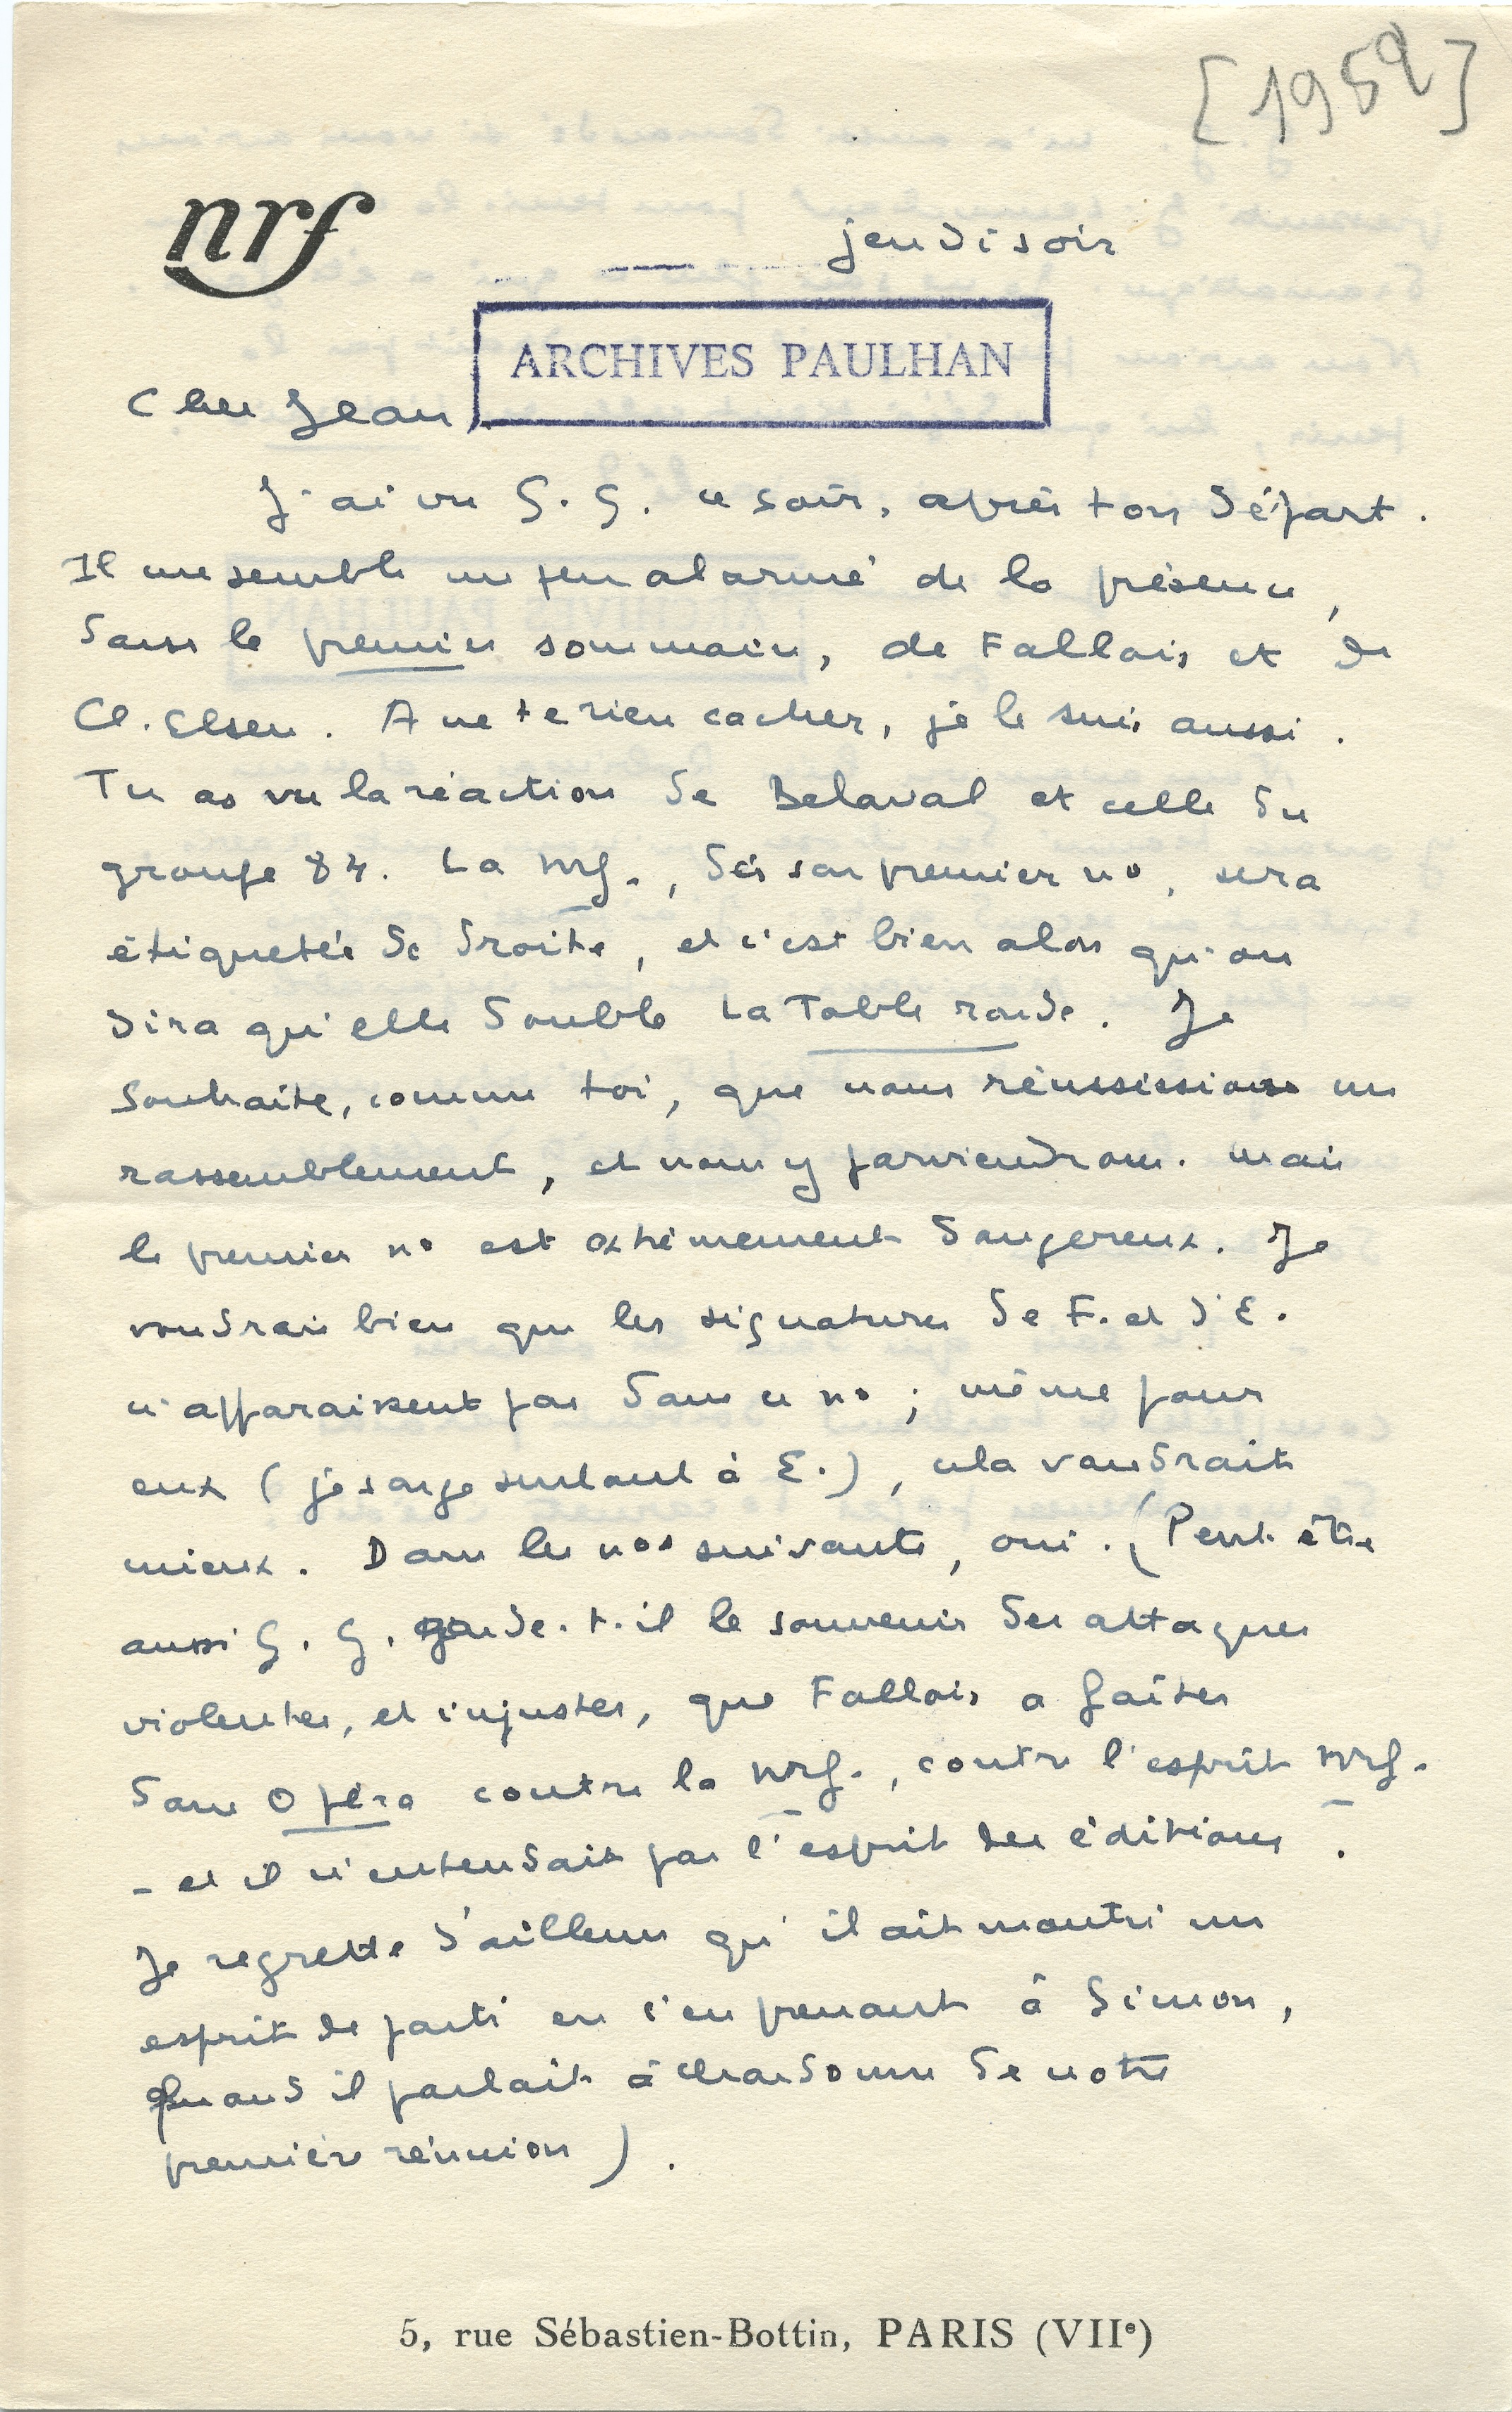 [1952]
nrf
jeudi soir
ARCHIVES PAULHAN
Cher Jean,
J'ai vu G. G. ce soir, après ton départ.
Il me semble un peu alarmé de la présence,
dans le premier sommaire, de Fallois et de
Cl. Elsen. A ne te rien cacher, je le suis aussi.
Tu as vu la réaction de Belaval et celle du
groupe 84. La nrf., dès son premier no, sera
étiquetée de droite, et c'est bien alors qu'on
dira qu'elle double La Table ronde. Je
souhaite, comme toi, que nous réussissions un
rassemblement, et nous y parviendrons. Mais
le premier no est extrêmement dangereux. Je
voudrais bien que les signatures de F. et d'E.
n'apparaissent pas dans ce no ; même pour
eux (je songe surtout à E.), cela vaudrait
mieux. Dans les nos suivants, oui. (Peut-être
aussi G. G. garde-t-il le souvenir des attaques
violentes, et injustes, que Fallois a faites
dans Opéra contre la nrf., contre l'esprit nrf.
- et il n'entendait pas l'esprit des éditions.
Je regrette d'ailleurs qu'il ait montré un
esprit de parti en s'en prenant à Simon,
quand il parlait à Chardonne de notre
première réunion).
5, rue Sébastien-Bottin, PARIS (VIIe)